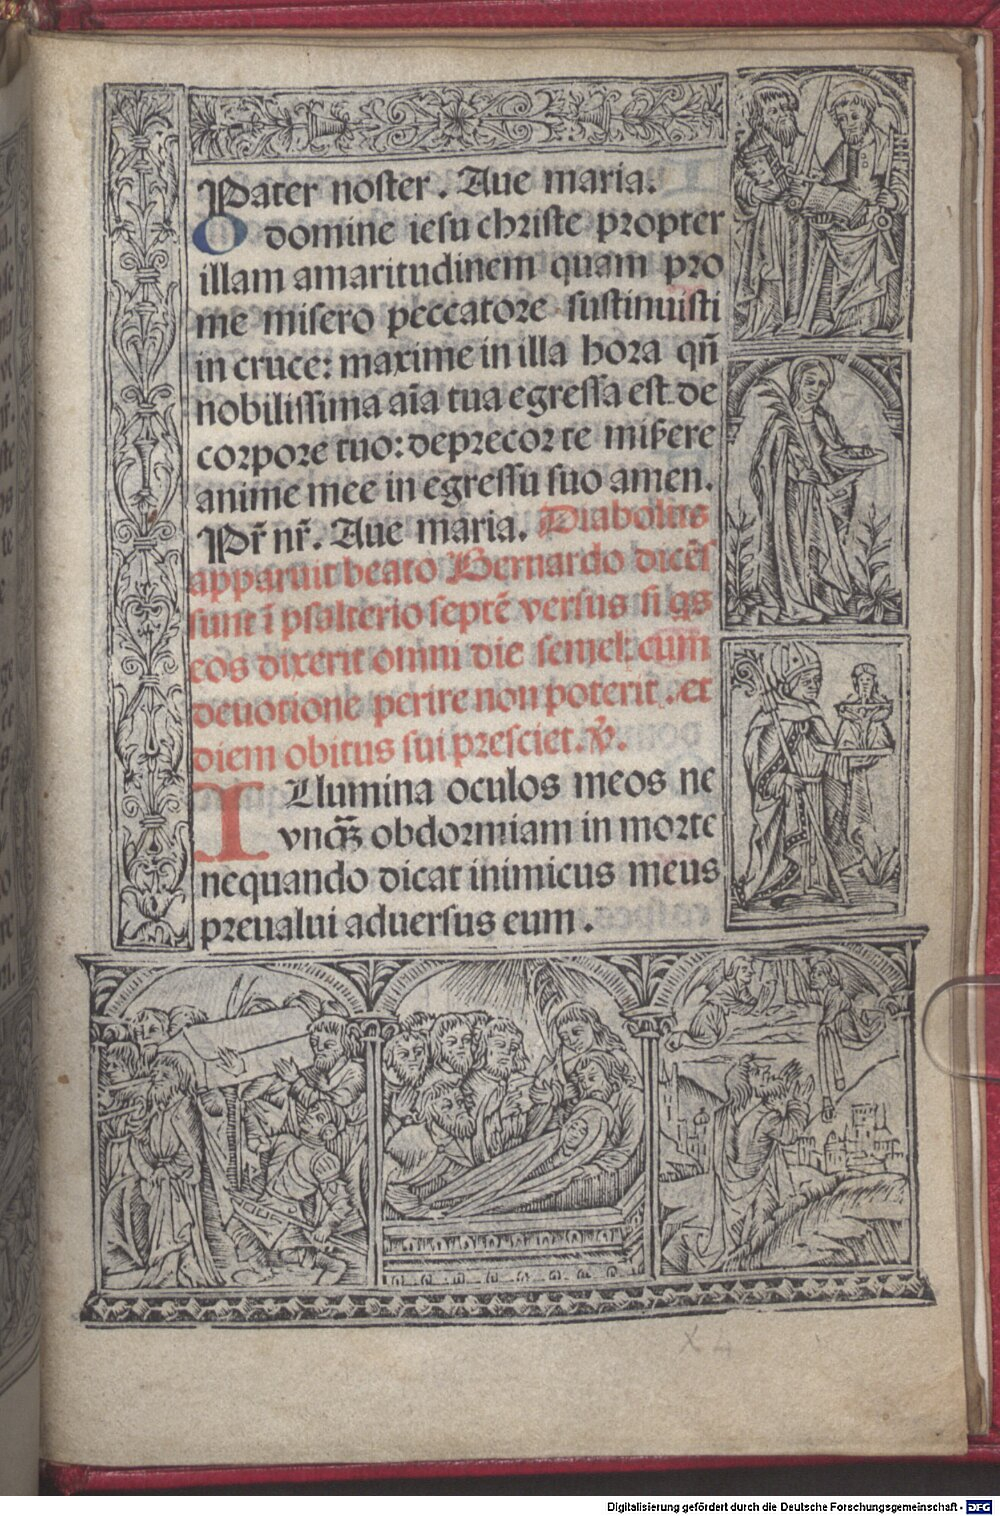 Pater noster. Aue maria.
O domine iesu christe propter
illam amaritudinem quam pro
me misero peccatore sustinuisti
in cruce: maxime in illa hora qn̄
nobilissima aīa tua egressa est de
corpore tuo: deprecor te miẜere
anime mee in egressu suo amen.
Pr̄ nr̄. Aue maria. Diabolus
apparuit beato Bernardo dicēs
sunt ī psalterio septē versus si qs
eos dixerit omni die semel: cum
deuotione perire non poterit. et
diem obitus sui presciet. v̾.
ILlumina oculos meos ne
vnq̄ꝫ obdormiam in morte
nequando dicat inimicus meus
preualui aduersus eum.
x4
Digitalisierung gefördert durch die Deutsche Forschungsgemeinschaft - DFG